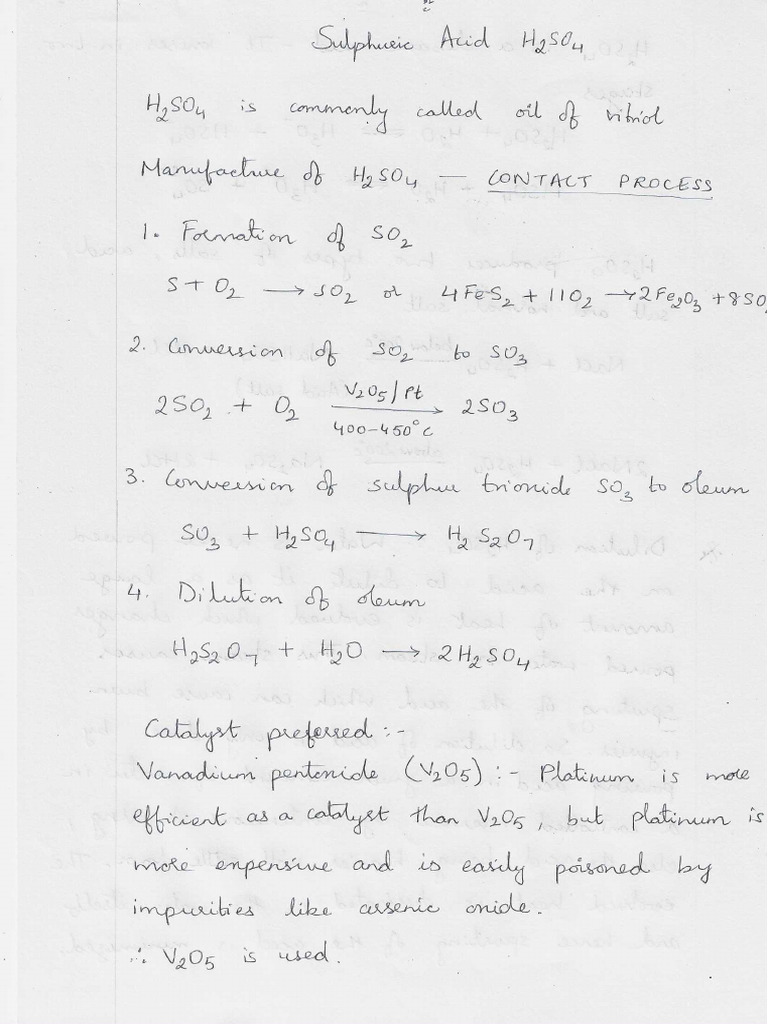 Sulphuric Acid H₂SO₄
H₂SO₄ is commonly called oil of vitriol
Manufacture of H₂SO₄ — CONTACT PROCESS
1. Formation of SO₂
S + O₂ → SO₂ or 4FeS₂ + 11O₂ → 2Fe₂O₃ + 8SO₂
2. Conversion of SO₂ to SO₃
V₂O₅/Pt
2SO₂ + O₂ → 2SO₃
400–450°C
3. Conversion of sulphur trioxide SO₃ to oleum
SO₃ + H₂SO₄ → H₂S₂O₇
4. Dilution of oleum
H₂S₂O₇ + H₂O → 2H₂SO₄
Catalyst preferred :-
Vanadium pentoxide (V₂O₅) :- Platinum is more
efficient as a catalyst than V₂O₅, but platinum is
more expensive and is easily poisoned by
impurities like arsenic oxide.
∴ V₂O₅ is used.